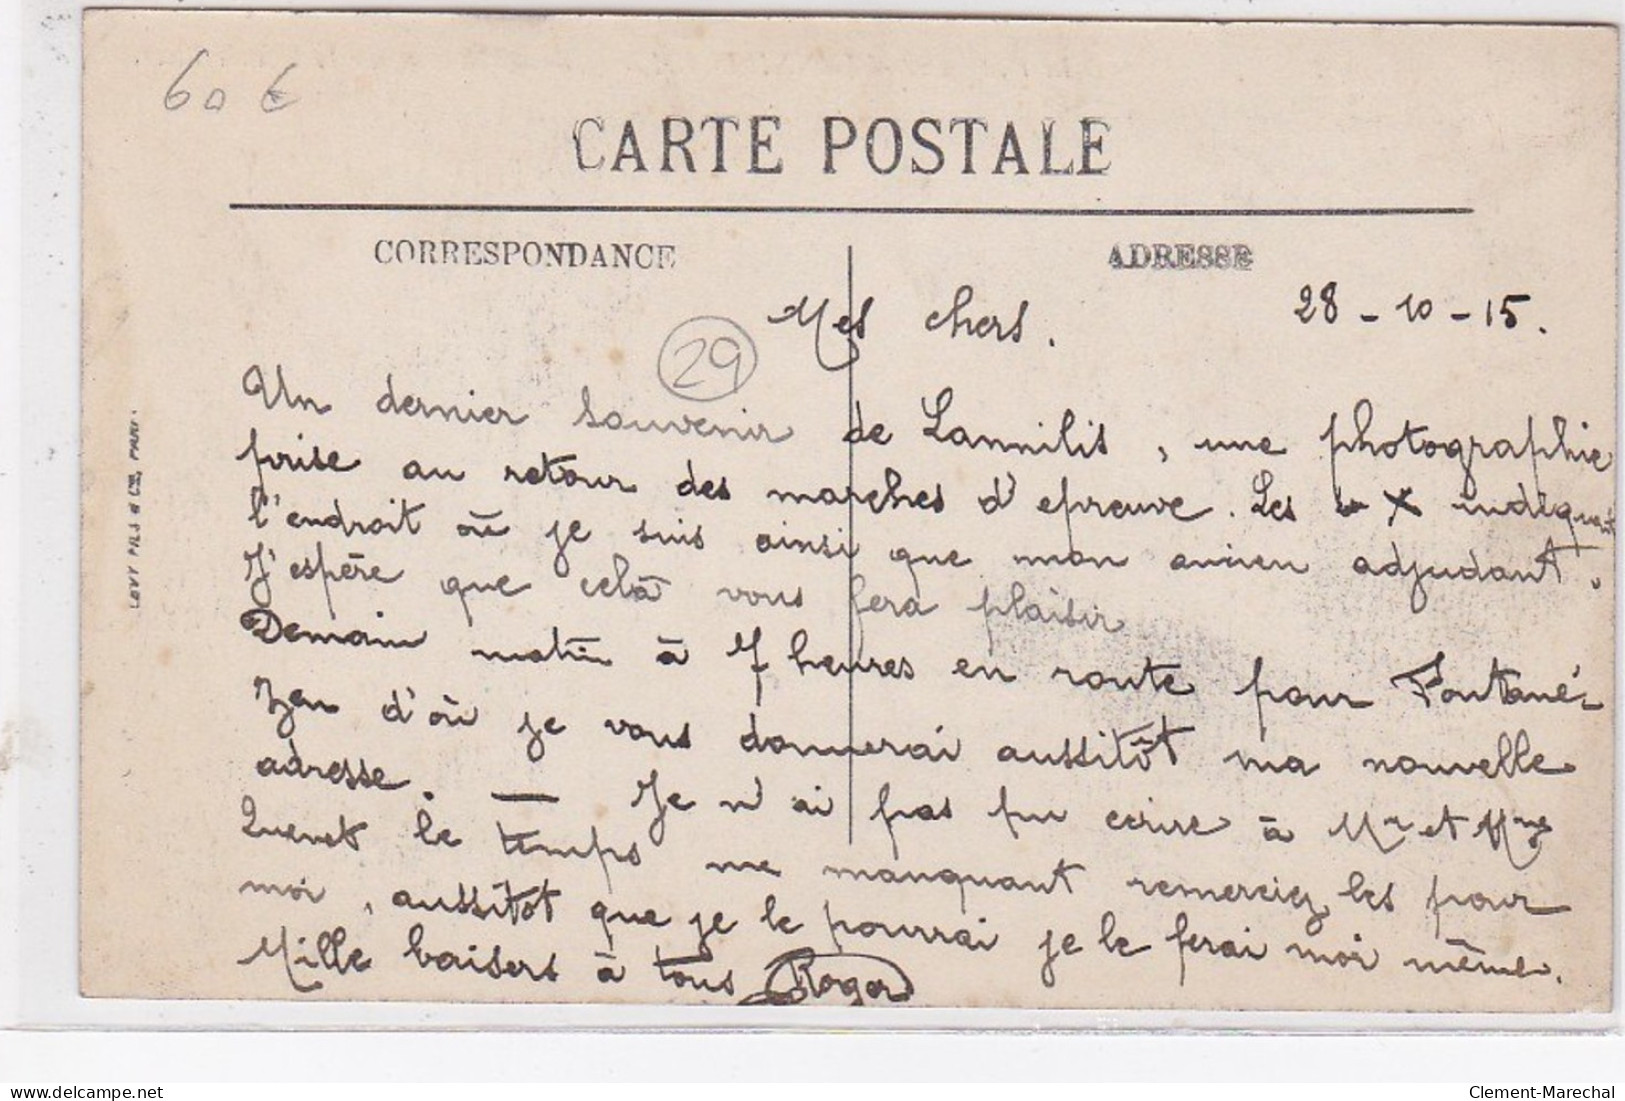 60 €
CARTE POSTALE
CORRESPONDANCE
ADRESSE
Mes chers.
28 - 10 - 15.
29
Un dernier souvenir de Lannilis, une photographie
prise au retour des marches d'épreuve. Les X indiquant
l'endroit où je suis ainsi que mon ancien adjudant.
J'espère que celà vous fera plaisir
Demain matin à 7 heures en route pour Fontané-
zen d'où je vous donnerai aussitôt ma nouvelle
adresse. — Je n'ai pas pu écrire à Mr et Mme
Quenet le temps me manquant remerciez les pour
moi, aussitôt que je le pourrai je le ferai moi même.
Mille baisers à tous Roger
LEVY FILS & Cie, PARIS.
delcampe.net
Clement-Marechal